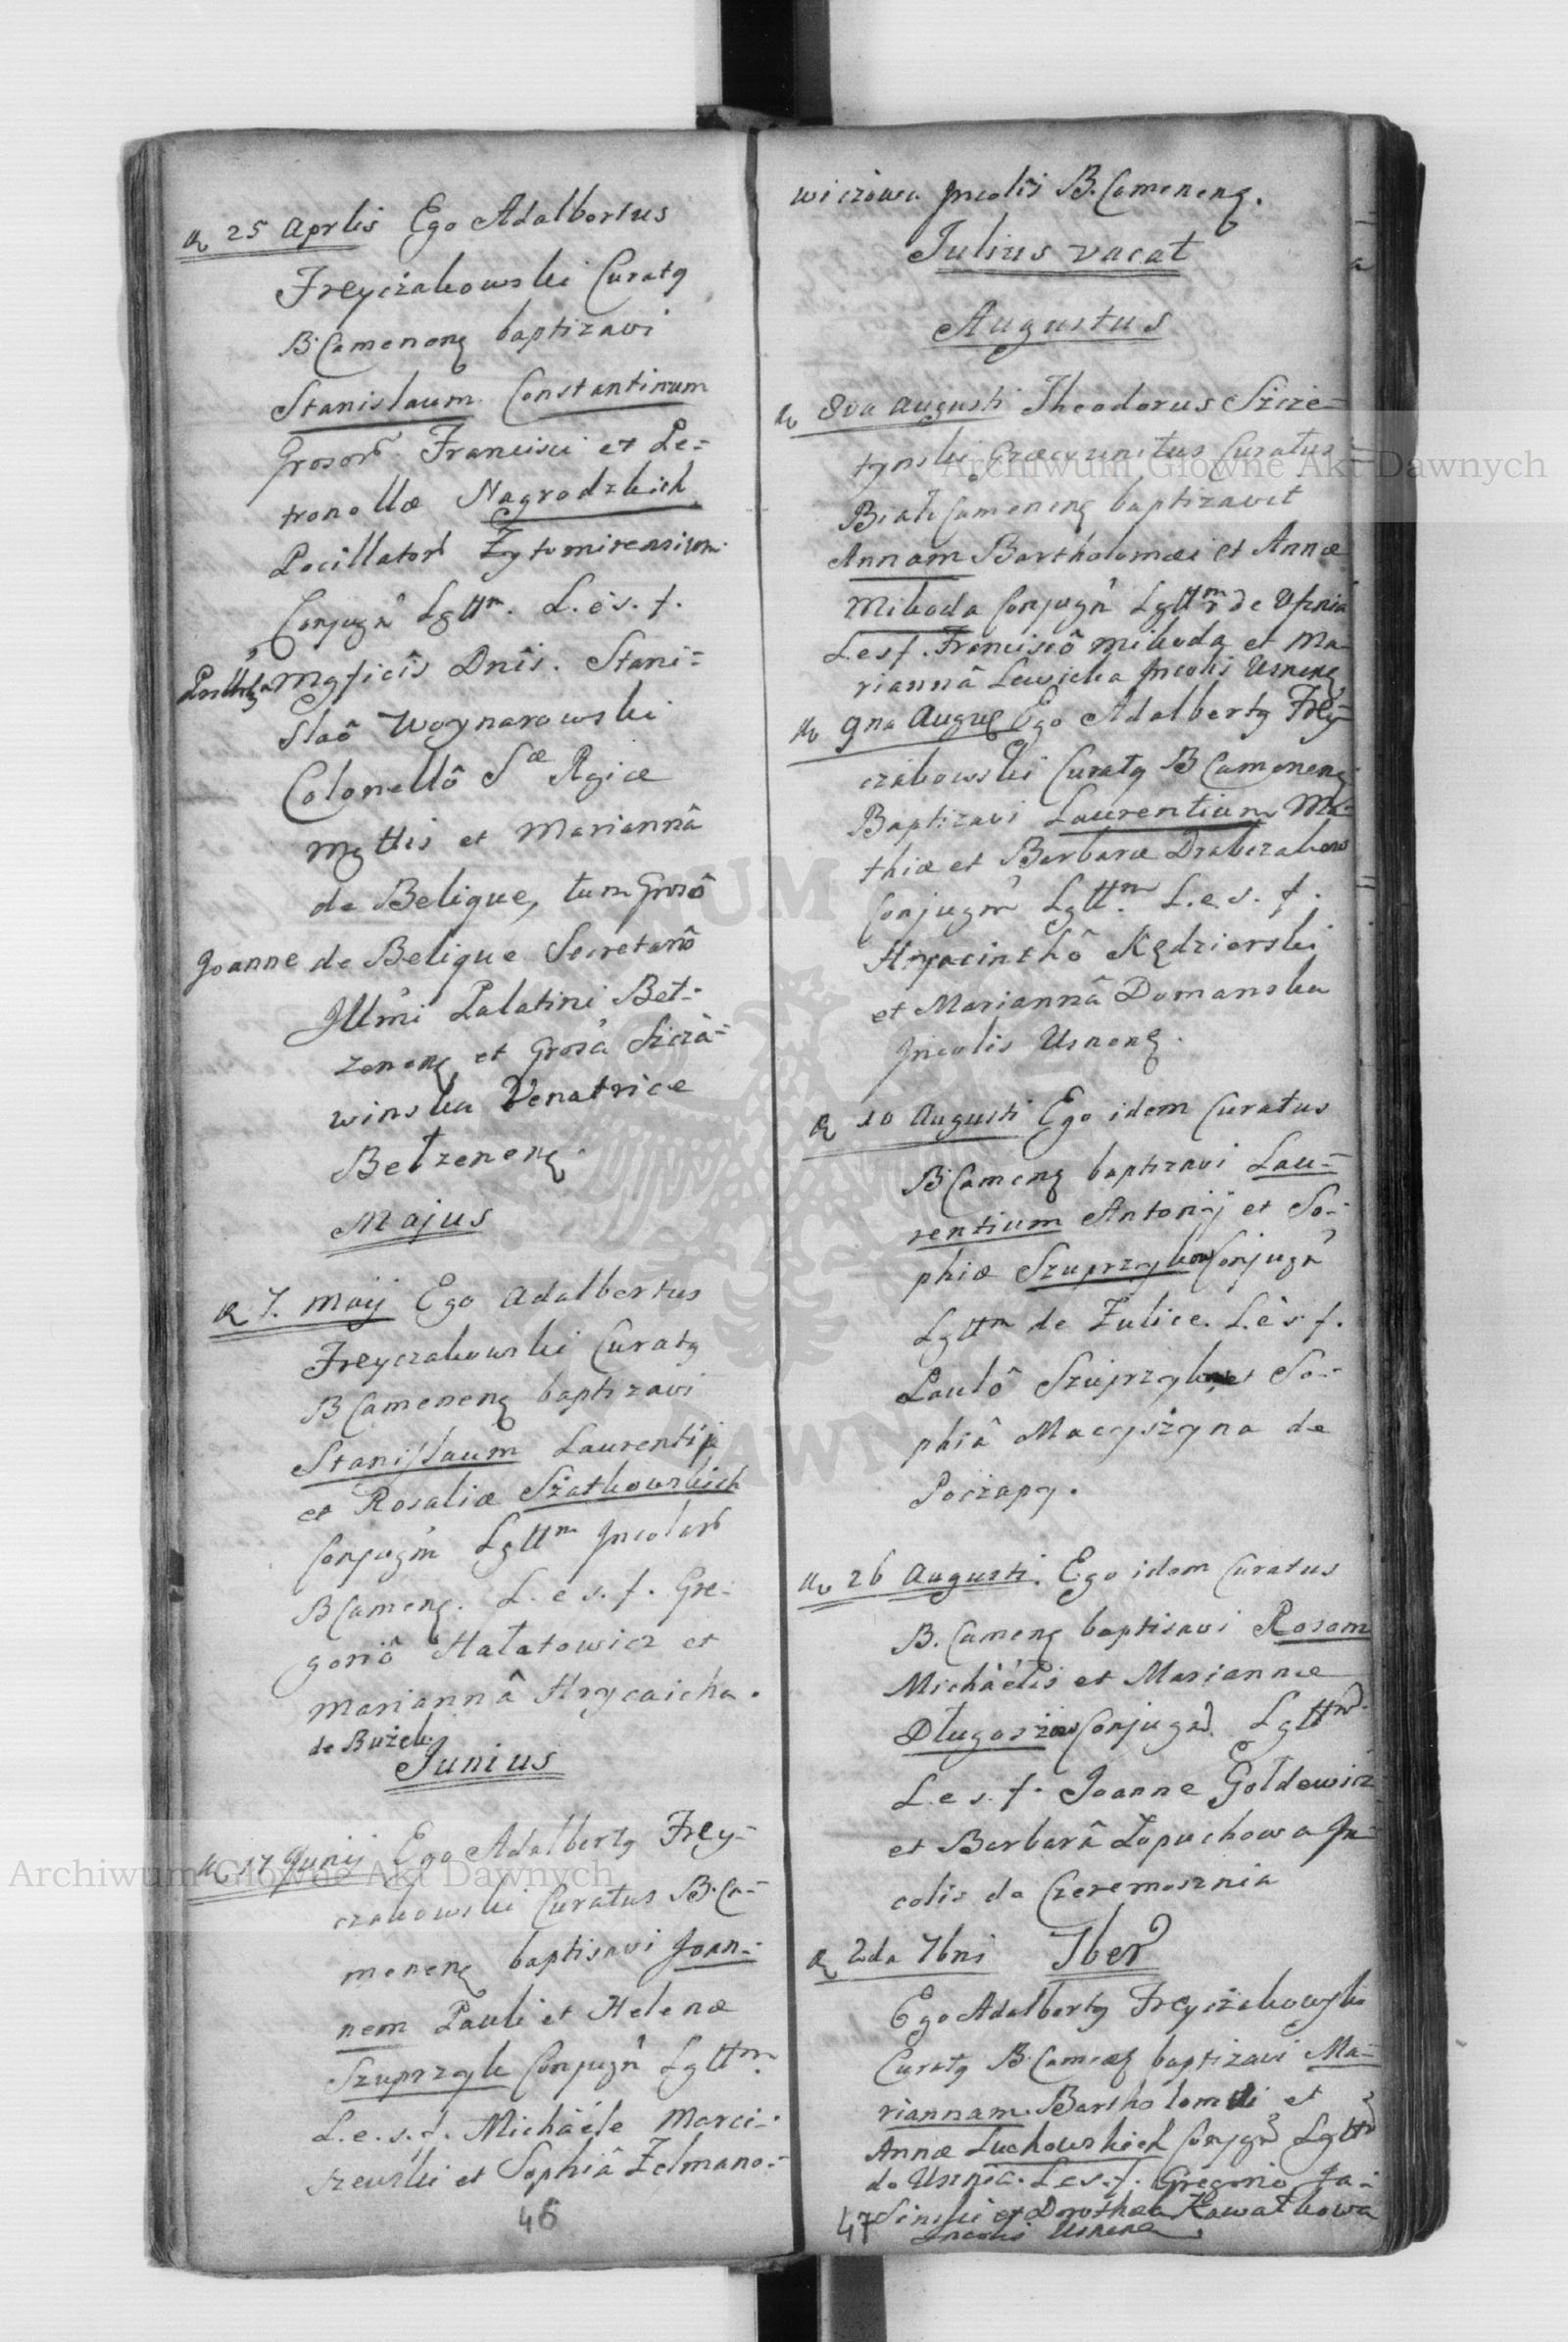 25 Aprlis Ego Adalbertus
Freyczakowski Curatg
B. Camenenq baptizavi
Stanislaum Constantinum
Grosor Francisci et Pe=
tronellæ Nagrodzkich
Pocillator Żytomirensium
Conjugũ Lgttm. L. e s. f.
Mgficis Dnîs. Stani=
slaô Woynarowski
Colonellô Sæ Rgiæ
Mgttis et Mariannâ
de Belique, tum Grosô
Joanne de Belique Secretariô
Jllmi Palatini Bet=
zenenq et Grosâ Szcza=
winska Venatrice
Bełzenenq.
Majus
7. Maij Ego Adalbertus
Freyczakowski Curatg
B Camenenq baptizavi
Stanislaum Laurentij
et Rosaliæ Szatkowskich
Conjugũ Lgttm Jncolar
B Camenq. L. e s. f. Gre=
goriô Hałatowicz et
Mariannâ Hrycaicha.
de Bużek.
Junius
17 Junij Ego Adalbertg Frey=
czakowski Curatus B. Ca=
menenq baptisavi Joan=
nem Pauli et Helenæ
Szuprzyk Conjugũ Lgttm.
L. e. s. f. Michäéle Marci=
szewski et Sophiâ Zelmano=
46
wiczowa Jncolis B. Camenenq.
Julius vacat
Augustus
8va Augusti Theodorus Szcze=
tynski Græcyunitus Curatus
Biał Camenenq baptizavit
Annam Bartholomæi et Annæ
Mikoda Conjugũ Lgttm de Usznia
L. e s f. Franciscô Mikoda et Ma=
riannâ Lewicka Jncolis Usnenq
9na Augusq Ego Adalbertg Frey=
czakowski Curatg B Camenenq
Baptizavi Laurentium Ma=
thiæ et Barbaræ Drabczakow
Conjugũ Lgttm L. e. s. f.
Hyacinthô Kędzierski
et Mariannâ Domanska
Jncolis Usnenq.
10 Augusti Ego idem Curatus
B Camenq baptizavi Lau=
rentium Antonij et So=
phiæ Szuprzykow Conjugũ
Lgttm de Żulice. L. e s f.
Paulô Szuprzyk et So=
phiâ Macyszyna de
Poczapy.
26 Augusti. Ego idem Curatus
B. Camenq baptisavi Rosam
Michäélis et Mariannæ
Długoszow Conjugũ. Lgttm.
L. e s. f. Joanne Gołdewicz
et Barbarâ Łopuchowa Jn=
colis de Czeremosznia
2da 7bris 7ber
Ego Adalbertg Freyczakowski
Curatg B. Camenq baptizavi Ma=
riannam Bartholomæi et
Annæ Luchowskich Conjugũ Lgttm
de Usznia. L e s. f. Gregoriô Ja=
sinski et Dorothea Kowalkowa
Jncolis Usnenq.
47
Archiwum Główne Akt Dawnych
Archiwum Główne Akt Dawnych